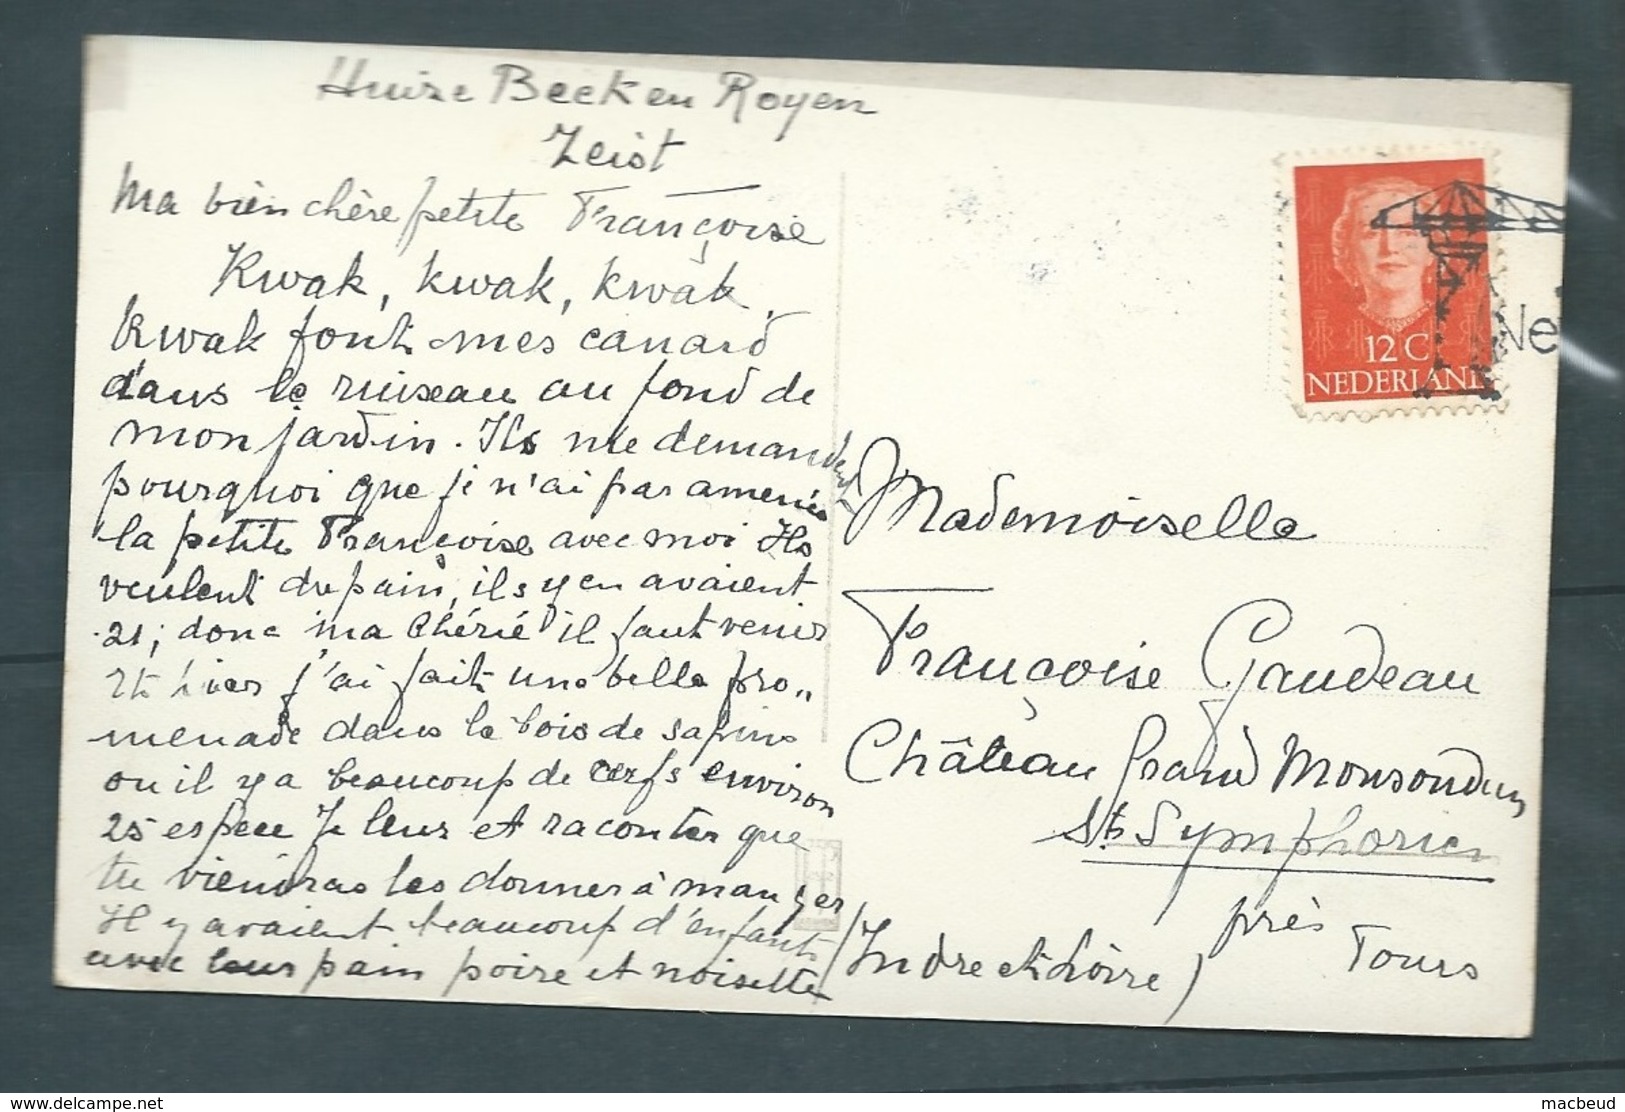 Huize Beek en Royen
Zeist
Ma bien chère petite Françoise
Kwak, kwak, kwak,
kwak font mes canard
dans le ruiseau au fond de
mon jardin. Ils me demandent
pourquoi que je n'ai pas amenés
la petite Françoise avec moi Ils
veulent du pain, ils y en avaient
21; donc ma Chérié il faut venir
et hier j'ai fait une belle pro„
menade dans le bois de sapins
ou il y a beaucoup de cerfs environ
25 espece Je leur et raconter que
tu viendras les donner à manger
Il y avaient beaucoup d'enfants
avec leur pain poire et noisette
12 C
NEDERLAND
Ne
Mademoiselle
Françoise Gaudeau
Château Grand Monsoudun
St Symphorien
près Tours
(Indre et Loire)
macbeud
www.delcampe.net